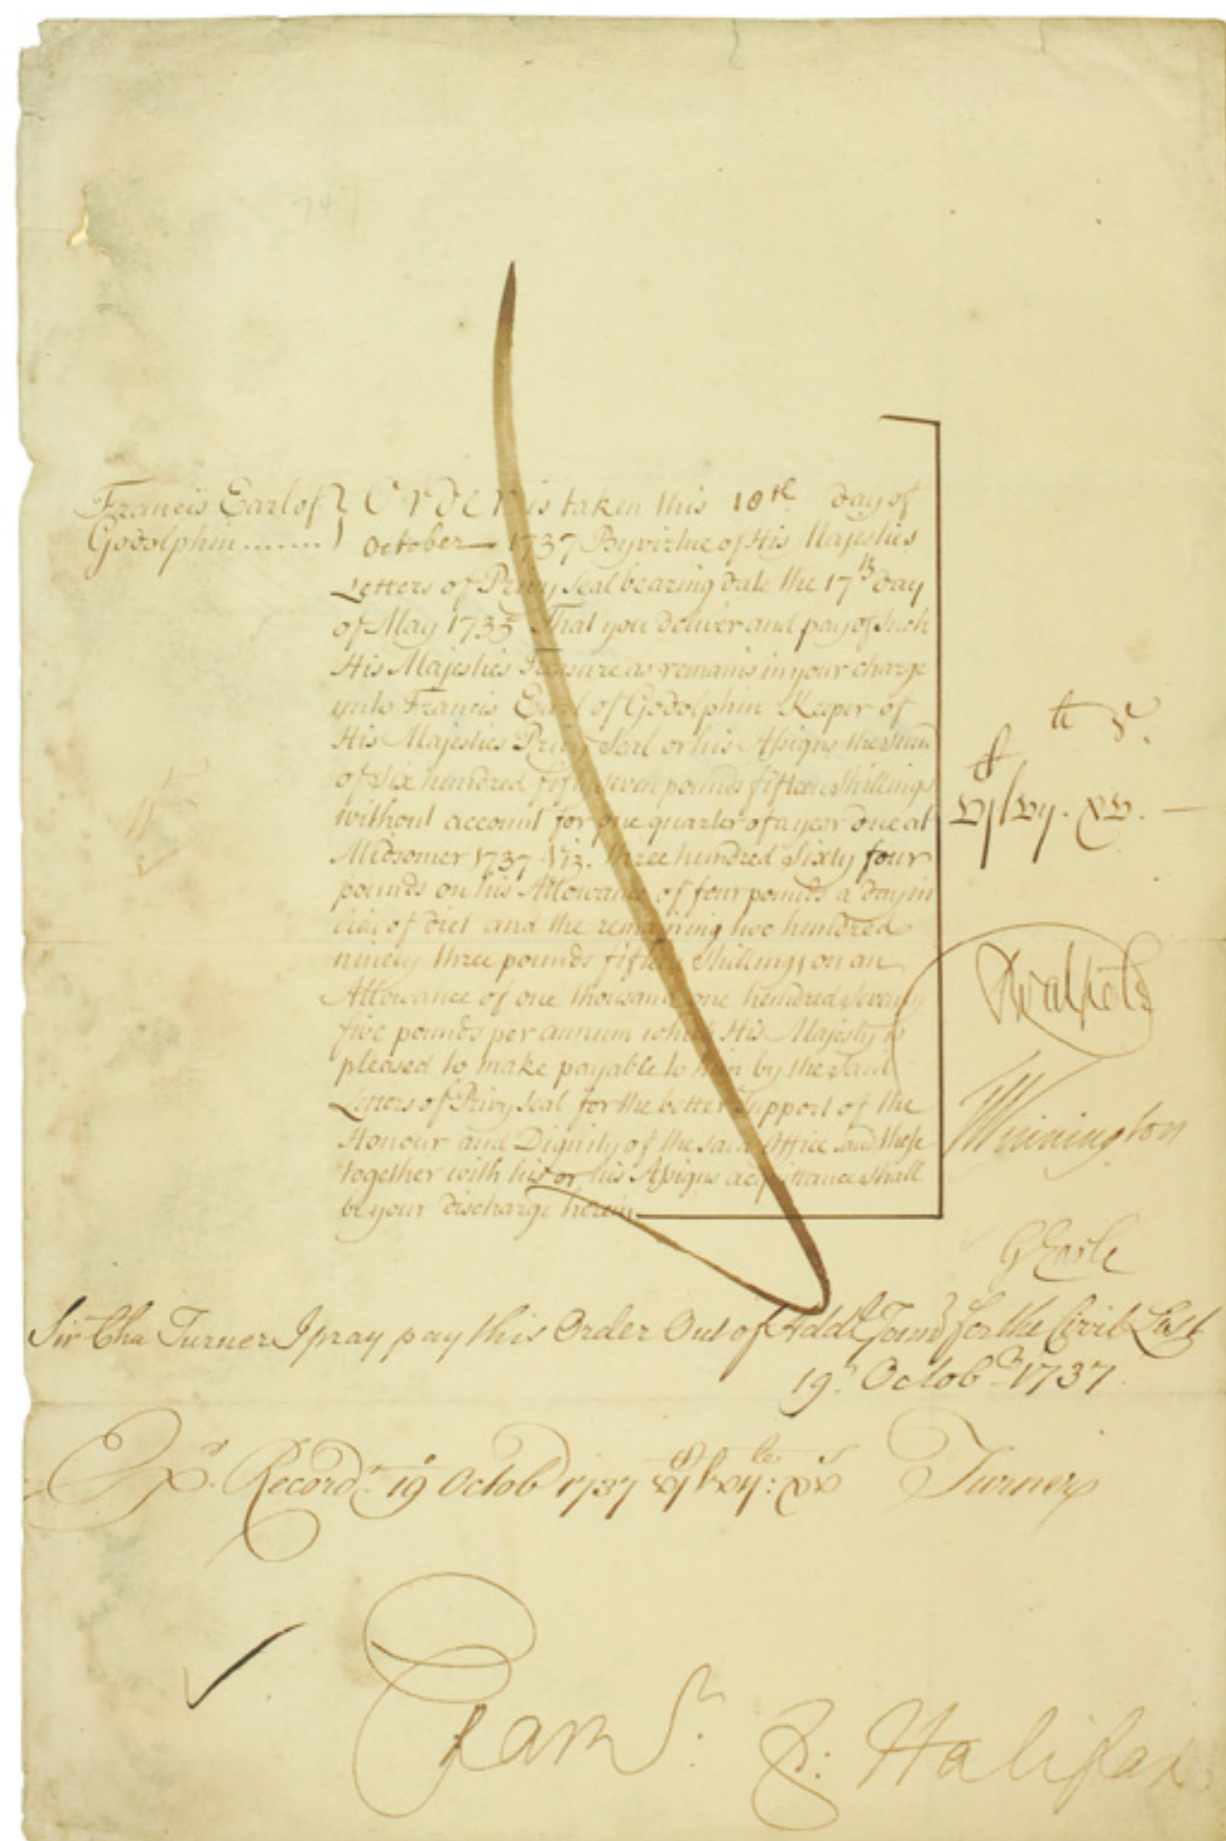 Francis Earl of } Order is taken this 18th day of
Godolphin ....... } October 1737 By virtue of His Majesties
Letters of Privy Seal bearing date the 17th day
of May 1735 That you deliver and pay of such
His Majesties Treasure as remains in your charge
unto Francis Earl of Godolphin Keeper of
His Majesties Privy Seal or his Assigns the sum
of six hundred fifty seven pounds fifteen shillings
without account for one quarter of a year due at
Midsomer 1737 Viz. three hundred sixty four
pounds on his Allowance of four pounds a day in
lieu of diet and the remaining two hundred
ninety three pounds fifteen shillings on an
Allowance of one thousand one hundred seventy
five pounds per annum which His Majesty is
pleased to make payable to him by the said
Letters of Privy Seal for the better support of the
Honour and Dignity of the said Office and these
together with his or his Assigns acquittance shall
be your discharge herein
RWalpole
Winnington
G Earle
Sir Cha Turner I pray pay this Order Out of Addl Joind for the Civil List
19 Octobr 1737
Record 19 Octob 1737
Turner
Halifax